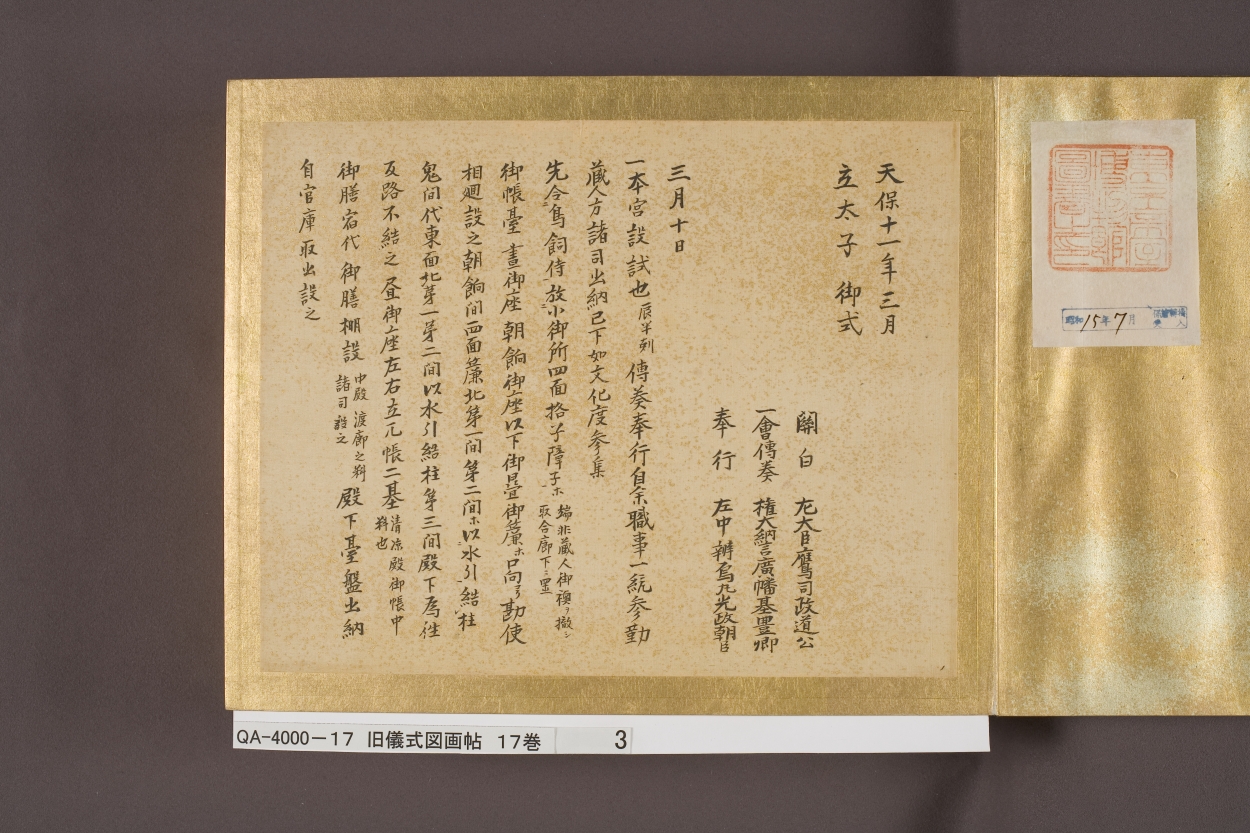 天保十一年三月
立太子 御式
関白 左大臣鷹司政通公
一會傳奏 権大納言廣幡基豊卿
奉行 左中辨烏丸光政朝臣
三月十日
一本宮設試也 辰半刻 傳奏奉行自余職事一統参勤
蔵人方諸司出納已下如文化度参集
先令鳥飼侍放小御所四面格子障子ホ 端非蔵人御襖ヲ撤シ
取合廊下ニ置
御帳臺 晝御座 朝餉御座以下御畳御簾ホ口向ヨ勘使
相廻設之朝餉間四面簾北第一間第二間ホ以水引結柱
鬼間代東面北第一第二間以水引結柱第三間殿下為往
反路不結之昼御座左右立几帳二基 清凉殿御帳中
料也
御膳宿代 御膳棚設 中殿渡廊之料
諸司設之 殿下臺盤出納
自官庫取出設之
昭和15年7月
QA-4000-17 旧儀式図画帖 17巻 3